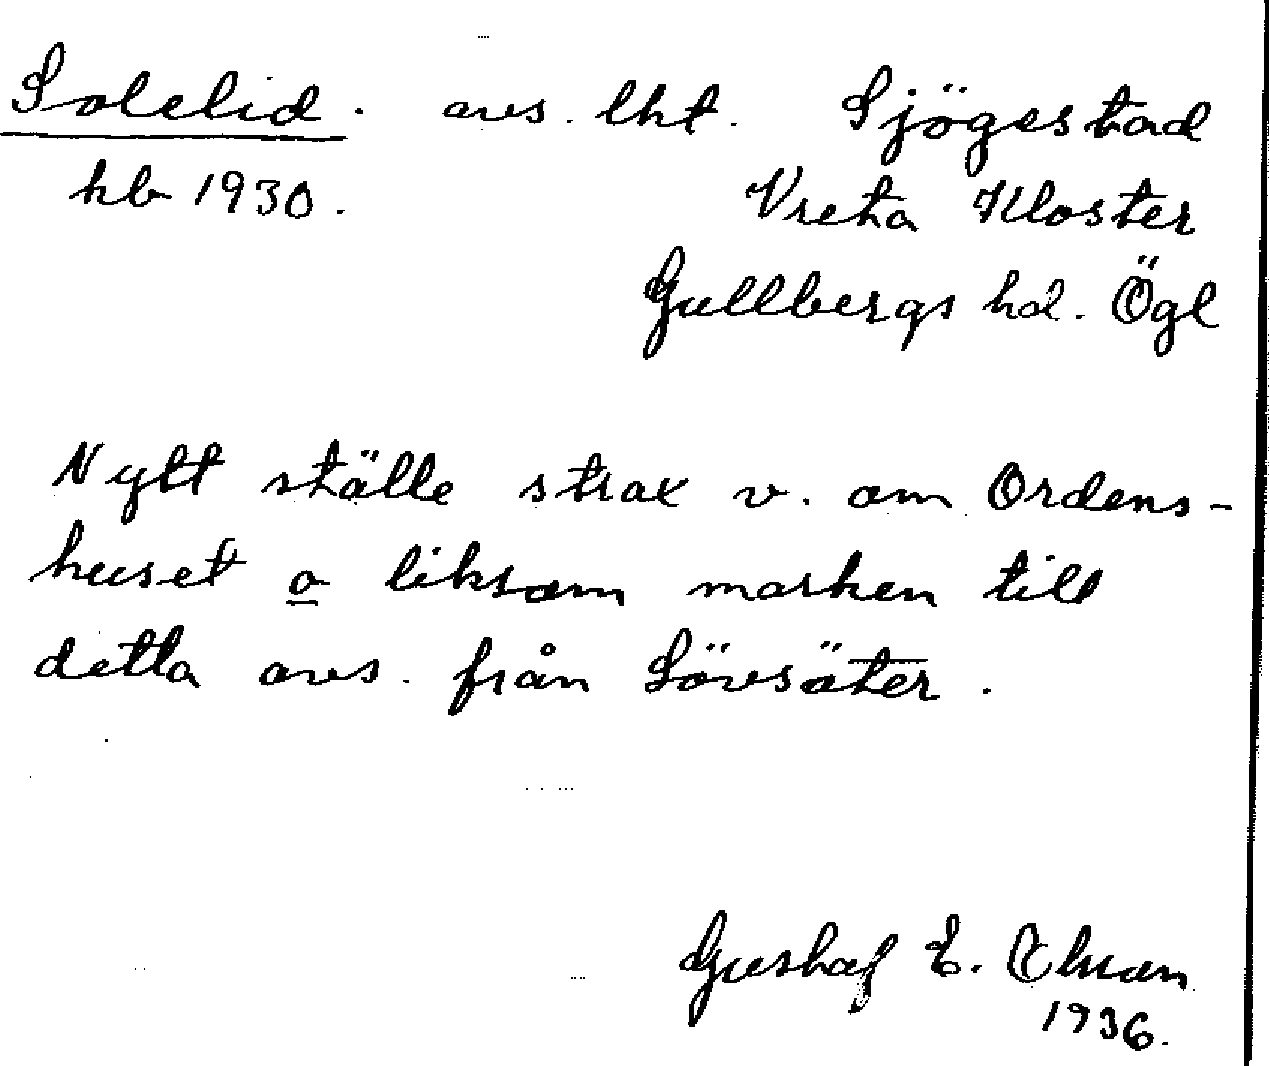 Solelid. avs. lht. Sjögestad
hb 1930. Vreta Kloster
Gullbergs hd. Ögl
Nytt ställe strax v. om Ordens-
huset o liksom marken till
detta avs. från Sörsäter.
Gustaf E.
1936.